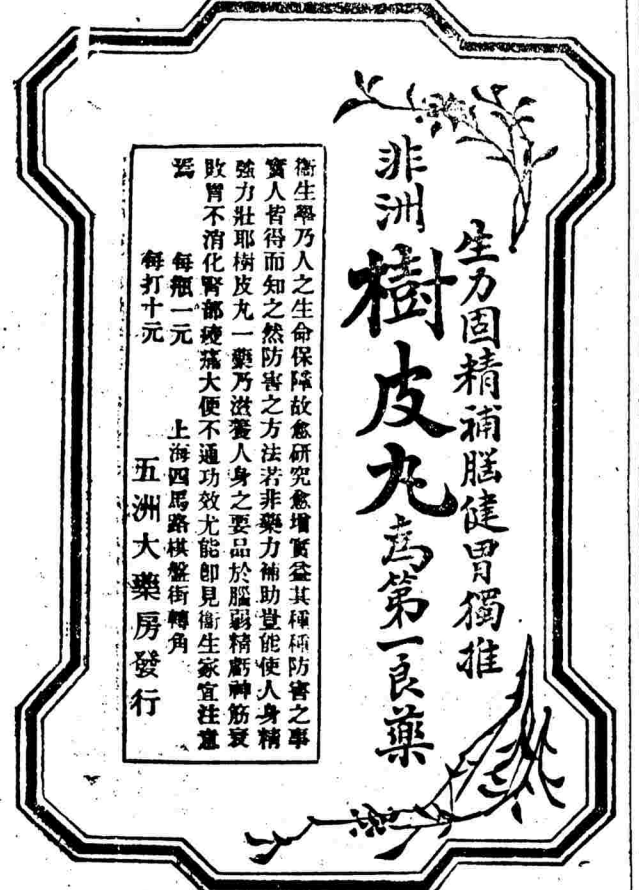 生力固精補腦健胃獨推
非洲樹皮丸為第一良藥
衛生學乃人之生命保障故愈研究愈增實益其種種防害之事
實人皆得而知之然防害之方法若非藥力補助豈能使人身精
強力壯耶樹皮丸一藥乃滋養人身之要品於腦弱精虧神筋衰
敗胃不消化腎部痠痛大便不通功效尤能卽見衛生家宜注意
焉 每瓶一元 上海四馬路棋盤街轉角
每打十元
五洲大藥房發行